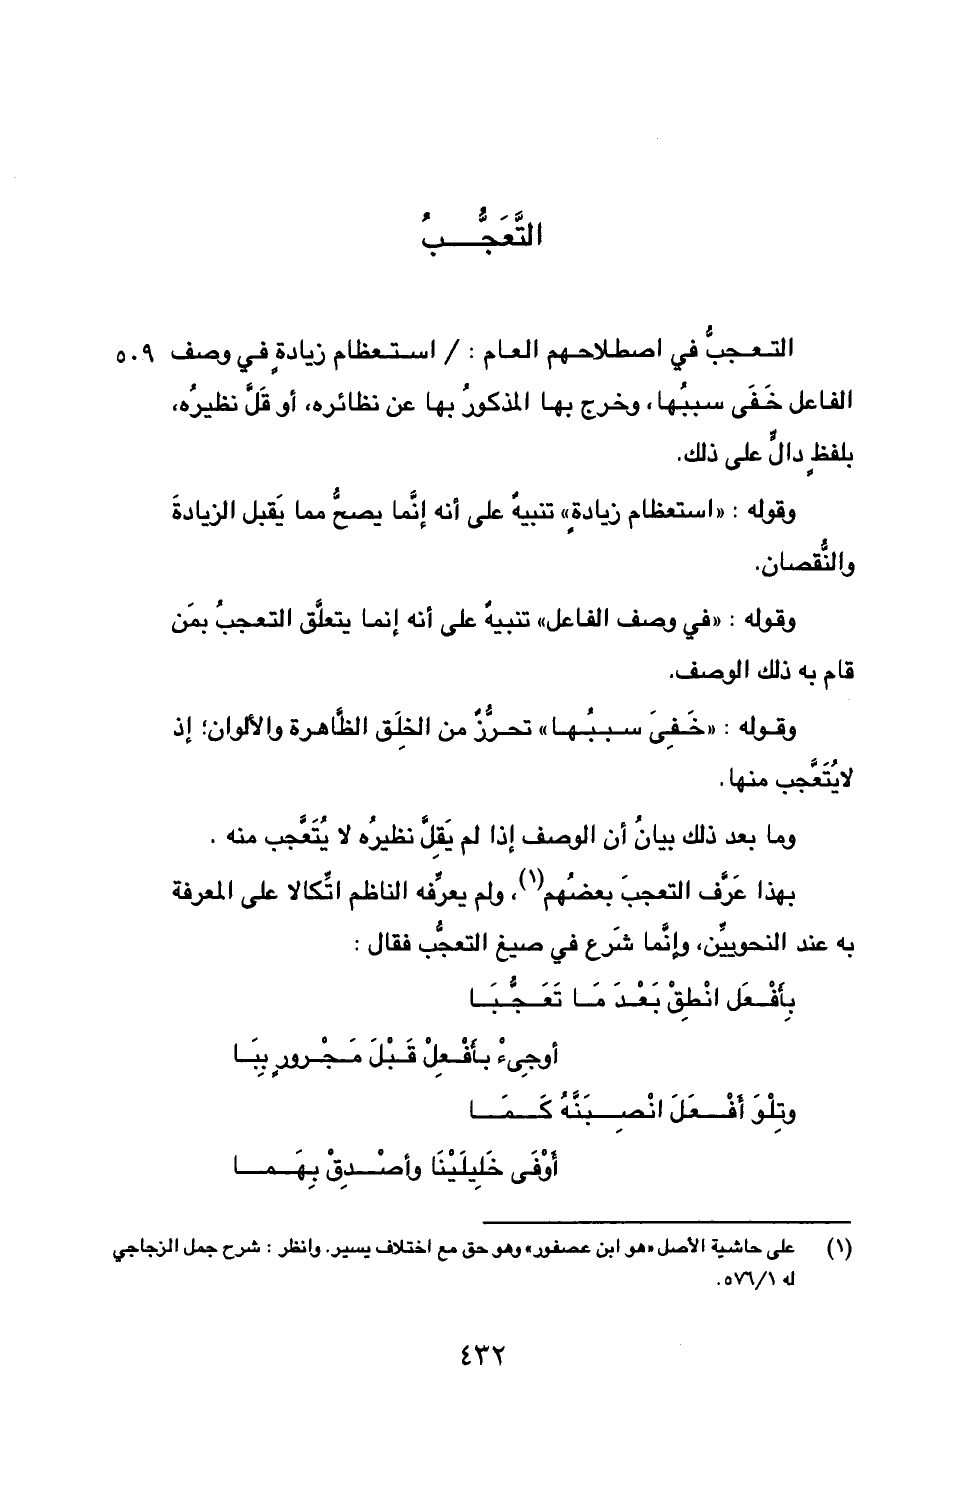 التَّعَجُّبُ
التعجبُّ في اصطلاحهم العام : / استعظام زيادةٍ في وصف ٥٠٩
الفاعل خَفَى سببُها، وخرج بها المذكورُ بها عن نظائره، أو قَلَّ نظيرُه،
بلفظٍ دالٍّ على ذلك.
وقوله : «استعظام زيادةٍ» تنبيهٌ على أنه إنَّما يصحُّ مما يَقبل الزيادةَ
والنُّقصان.
وقوله : «في وصف الفاعل» تنبيهٌ على أنه إنما يتعلَّق التعجبُ بمَن
قام به ذلك الوصف.
وقوله : «خَفِىَ سببُها» تحرزُّ من الخلَق الظَّاهرة والألوان؛ إذ
لايُتَعَّجب منها.
وما بعد ذلك بيانُ أن الوصف إذا لم يَقِلَّ نظيرُه لا يُتَعَّجب منه .
بهذا عَرَّف التعجبَ بعضُهم(١)، ولم يعرِّفه الناظم اتِّكالا على المعرفة
به عند النحويِّن، وإنَّما شَرع في صيغ التعجُّب فقال :
بِأَفْعَل انْطِقْ بَعْدَ مَا تَعَجُّبَا
أوجِىءْ بأَفْعِلْ قَبْلَ مَجْرورٍ بِبَا
وتِلْوَ أفْعَلَ انْصِبَنَّهُ كَمَا
أَوْفَى خَلِيلَيْنَا وأصْدِقْ بِهَما
(١) على حاشية الأصل «هو ابن عصفور» وهو حق مع اختلاف يسير. وانظر : شرح جمل الزجاجي
له ٥٧٦/١.
٤٣٢